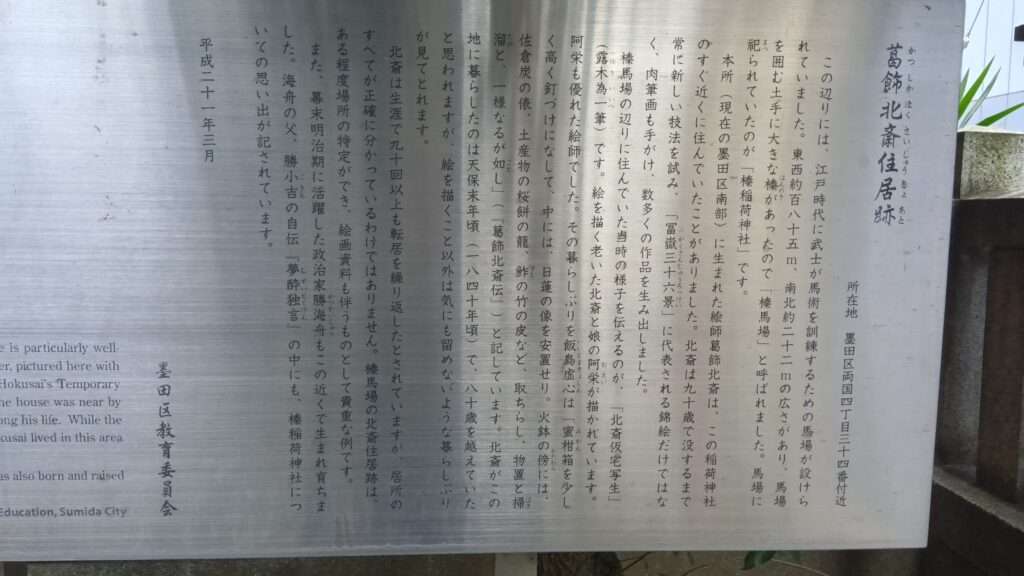 葛飾北斎住居跡
所在地 墨田区両国四丁目三十四番付近
この辺りには、江戸時代に武士が馬術を訓練するための馬場が設けら
れていました。東西約百八十五m、南北約二十二mの広さがあり、馬場
を囲む土手に大きな榛があったので「榛馬場」と呼ばれました。馬場に
祀られていたのが「榛稲荷神社」です。
本所（現在の墨田区南部）に生まれた絵師葛飾北斎は、この稲荷神社
のすぐ近くに住んでいたことがありました。北斎は九十歳で没するまで
常に新しい技法を試み、「冨嶽三十六景」に代表される錦絵だけではな
く、肉筆画も手がけ、数多くの作品を生み出しました。
榛馬場の辺りに住んでいた当時の様子を伝えるのが、「北斎仮宅写生」
（露木為一筆）です。絵を描く老いた北斎と娘の阿栄が描かれています。
阿栄も優れた絵師でした。その暮らしぶりを飯島虚心は、蜜柑箱を少し
く高く釘づけになして、中には、日蓮の像を安置せり。火鉢の傍には、
佐倉炭の俵、土産物の桜餅の籠、鮓の竹の皮など、取ちらし、物置と掃
溜と、一様なるが如し」（「葛飾北斎伝」）と記しています。北斎がこの
地に暮らしたのは天保末年頃（一八四十年頃）で、八十歳を越えていた
と思われますが、絵を描くこと以外は気にも留めないような暮らしぶり
が見てとれます。
北斎は生涯で九十回以上も転居を繰り返したとされていますが、居所の
すべてが正確に分かっているわけではありません。榛馬場の北斎住居跡は、
ある程度場所の特定ができ、絵画資料も伴うものとして貴重な例です。
また、幕末明治期に活躍した政治家勝海舟もこの近くで生まれ育ちま
した。海舟の父、勝小吉の自伝「夢酔独言」の中にも、榛稲荷神社につ
いての思い出が記されています。
平成二十一年三月
墨田区教育委員会
e is particularly well-
er, pictured here with
Hokusai's Temporary
he house was near by
ong his life. While the
kusai lived in this area
as also born and raised
Education, Sumida City